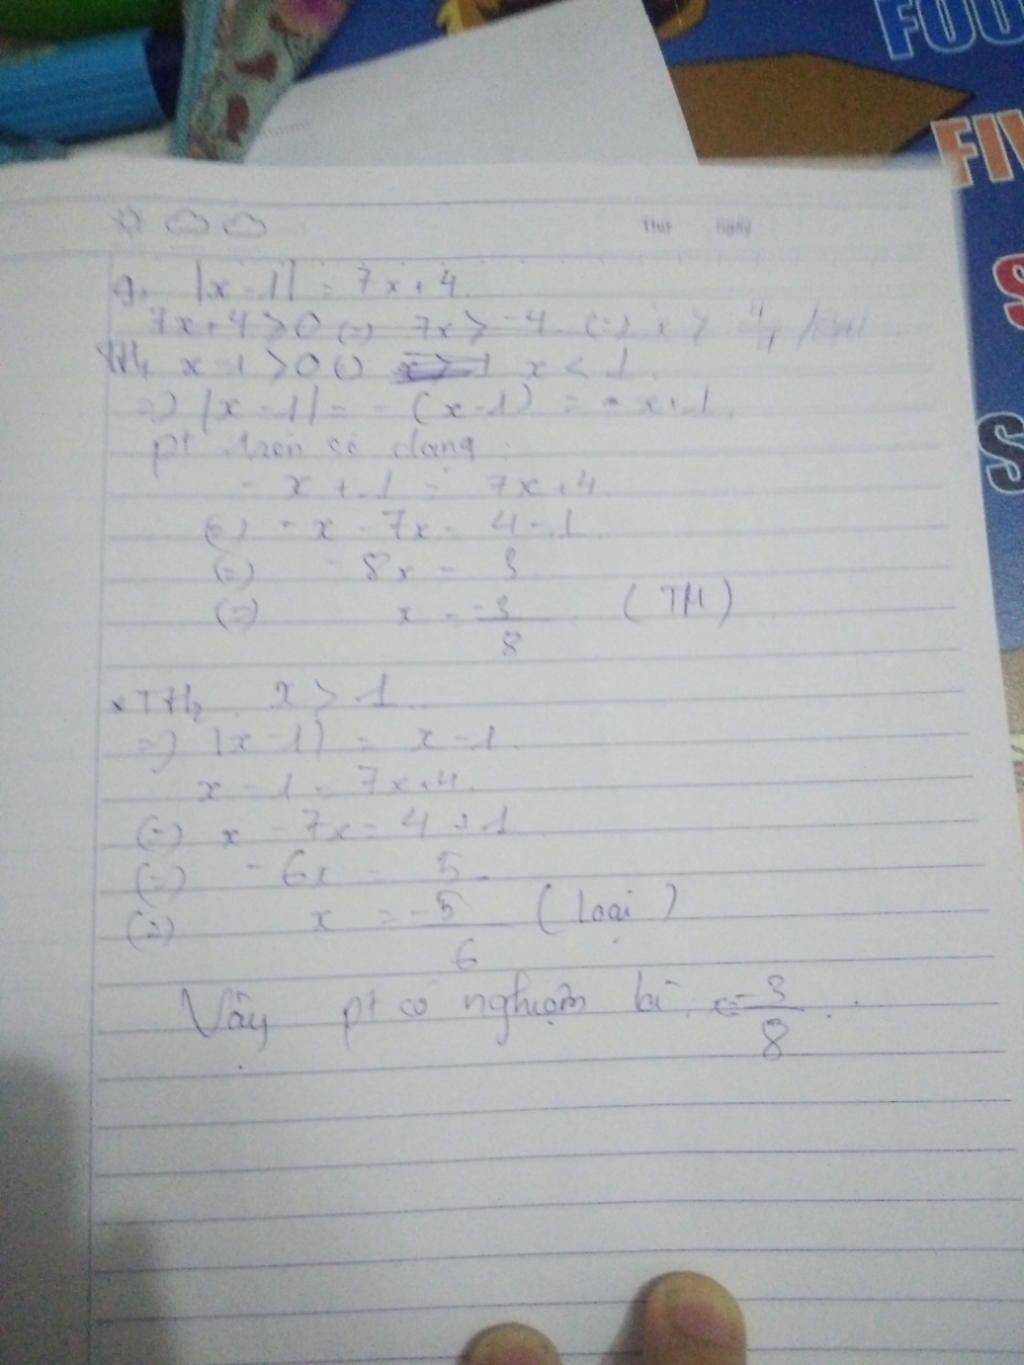 FOU
FIV
S
S
Thứ ngày
g, |x - 1| = 7x + 4
7x + 4 > 0 (=) 7x > -4 (=) x >
TH1 x - 1 > 0 (=) x < 1
=) |x - 1| = - (x - 1) = - x + 1
pt trên có dạng
- x + 1 = 7x + 4
(=) - x - 7x = 4 - 1
(=) - 8x = 3
(=) x = -3/8 (TM)
* TH2 x > 1
=) |x - 1| = x - 1
x - 1 = 7x + 4
(=) x - 7x = 4 + 1
(=) - 6x = 5
(=) x = -5/6 (loại)
Vậy pt có nghiệm là x = -3/8 .